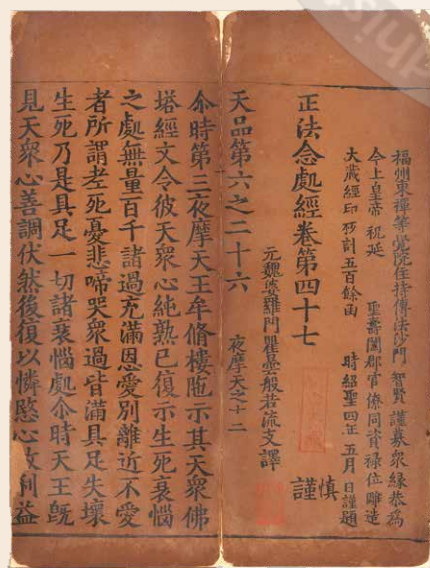 福州東禪等覺院住持傳法沙門 智賢 謹募衆緣恭爲
今上皇帝祝延 聖壽闔郡官僚同資祿位雕造
大藏經印板計五百餘函 時紹聖四年五月 日謹題
正法念處經卷第四十七 謹慎
元魏婆羅門瞿曇般若流支譯
天品第六之二十六 夜摩天之十二
尒時第三夜摩天王牟脩樓陁示其天衆佛
塔經文令彼天衆心純熟已復示生死衰惱
之處無量百千諸過充滿恩愛別離近不愛
者所謂老死憂悲啼哭衆過皆滿具足失壞
生死乃是具足一切諸衰惱處尒時天王旣
見天衆心善調伏然後復以憐愍心故利益